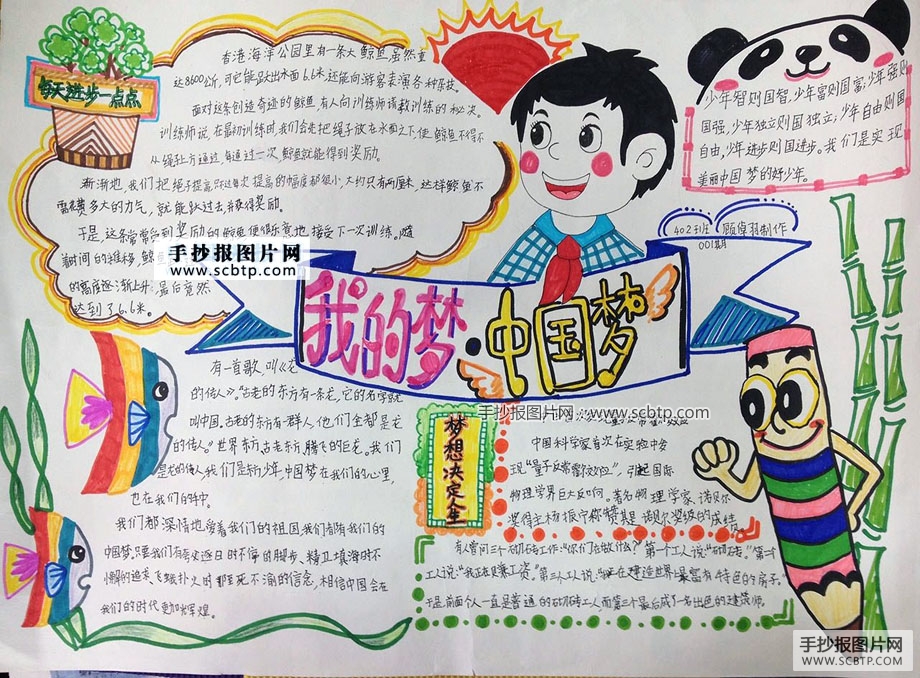 每天进步一点点
香港海洋公园里有一条大鲸鱼,虽然重
达8600公斤,可它能跃出水面6.6米,还能向游客表演各种杂技。
面对这条创造奇迹的鲸鱼,有人向训练师请教训练的秘诀。
训练师说:在最初训练时,我们会先把绳子放在水面之下,使鲸鱼不得不
从绳子上方通过,每通过一次,鲸鱼就能得到奖励。
渐渐地,我们把绳子提高,只不过每次提高的幅度都很小,大约只有两厘米,这样鲸鱼不
需花费多大的力气,就能跃过去,并获得奖励。
于是,这条常常受到奖励的鲸鱼,便很乐意地接受下一次训练。随
着时间的推移,鲸鱼
的高度逐渐上升,最后竟然
达到了6.6米。
手抄报图片网
www.scbtp.com
少年智则国智,少年富则国富,少年强则
国强,少年独立则国独立,少年自由则国
自由,少年进步则国进步。我们是实现
美丽中国梦的好少年。
402班 顾倬羽制作
001期
我的梦·中国梦
有一首歌,叫《龙
的传人》。“古老的东方有条龙,它的名字就
叫中国。古老的东方有群人,他们全都是龙
的传人。”世界东方,古老东方,腾飞的巨龙。我们
是龙的传人,我们是新少年,中国梦在我们的心里,
也在我们的手中。
我们都深情地爱着我们的祖国,我们都有我们的
中国梦。只要我们有夸父逐日时不停的脚步、精卫填海时不
懈的追求、飞蛾扑火时那至死不渝的信念,相信中国会在
我们的时代更加辉煌。
梦想决定人生
手抄报图片网:www.scbtp.com
中国科学家首次在实验中发
现“量子反常霍尔效应”,引起国际
物理学界巨大反响。著名物理学家、诺贝尔
奖得主杨振宁称赞其是诺贝尔奖级的成绩。
有人曾问三个砌砖工作:“你们在做什么?”第一个工人说:“砌砖。”第二个
工人说:“我正在赚工资。”第三个人说:“我正在建造世界上最富有特色的房子。”
于是前面两个人一直是普通的砌砖工人,而第三个最后成了一名出色的建筑师。
手抄报图片网
WWW.SCBTP.COM